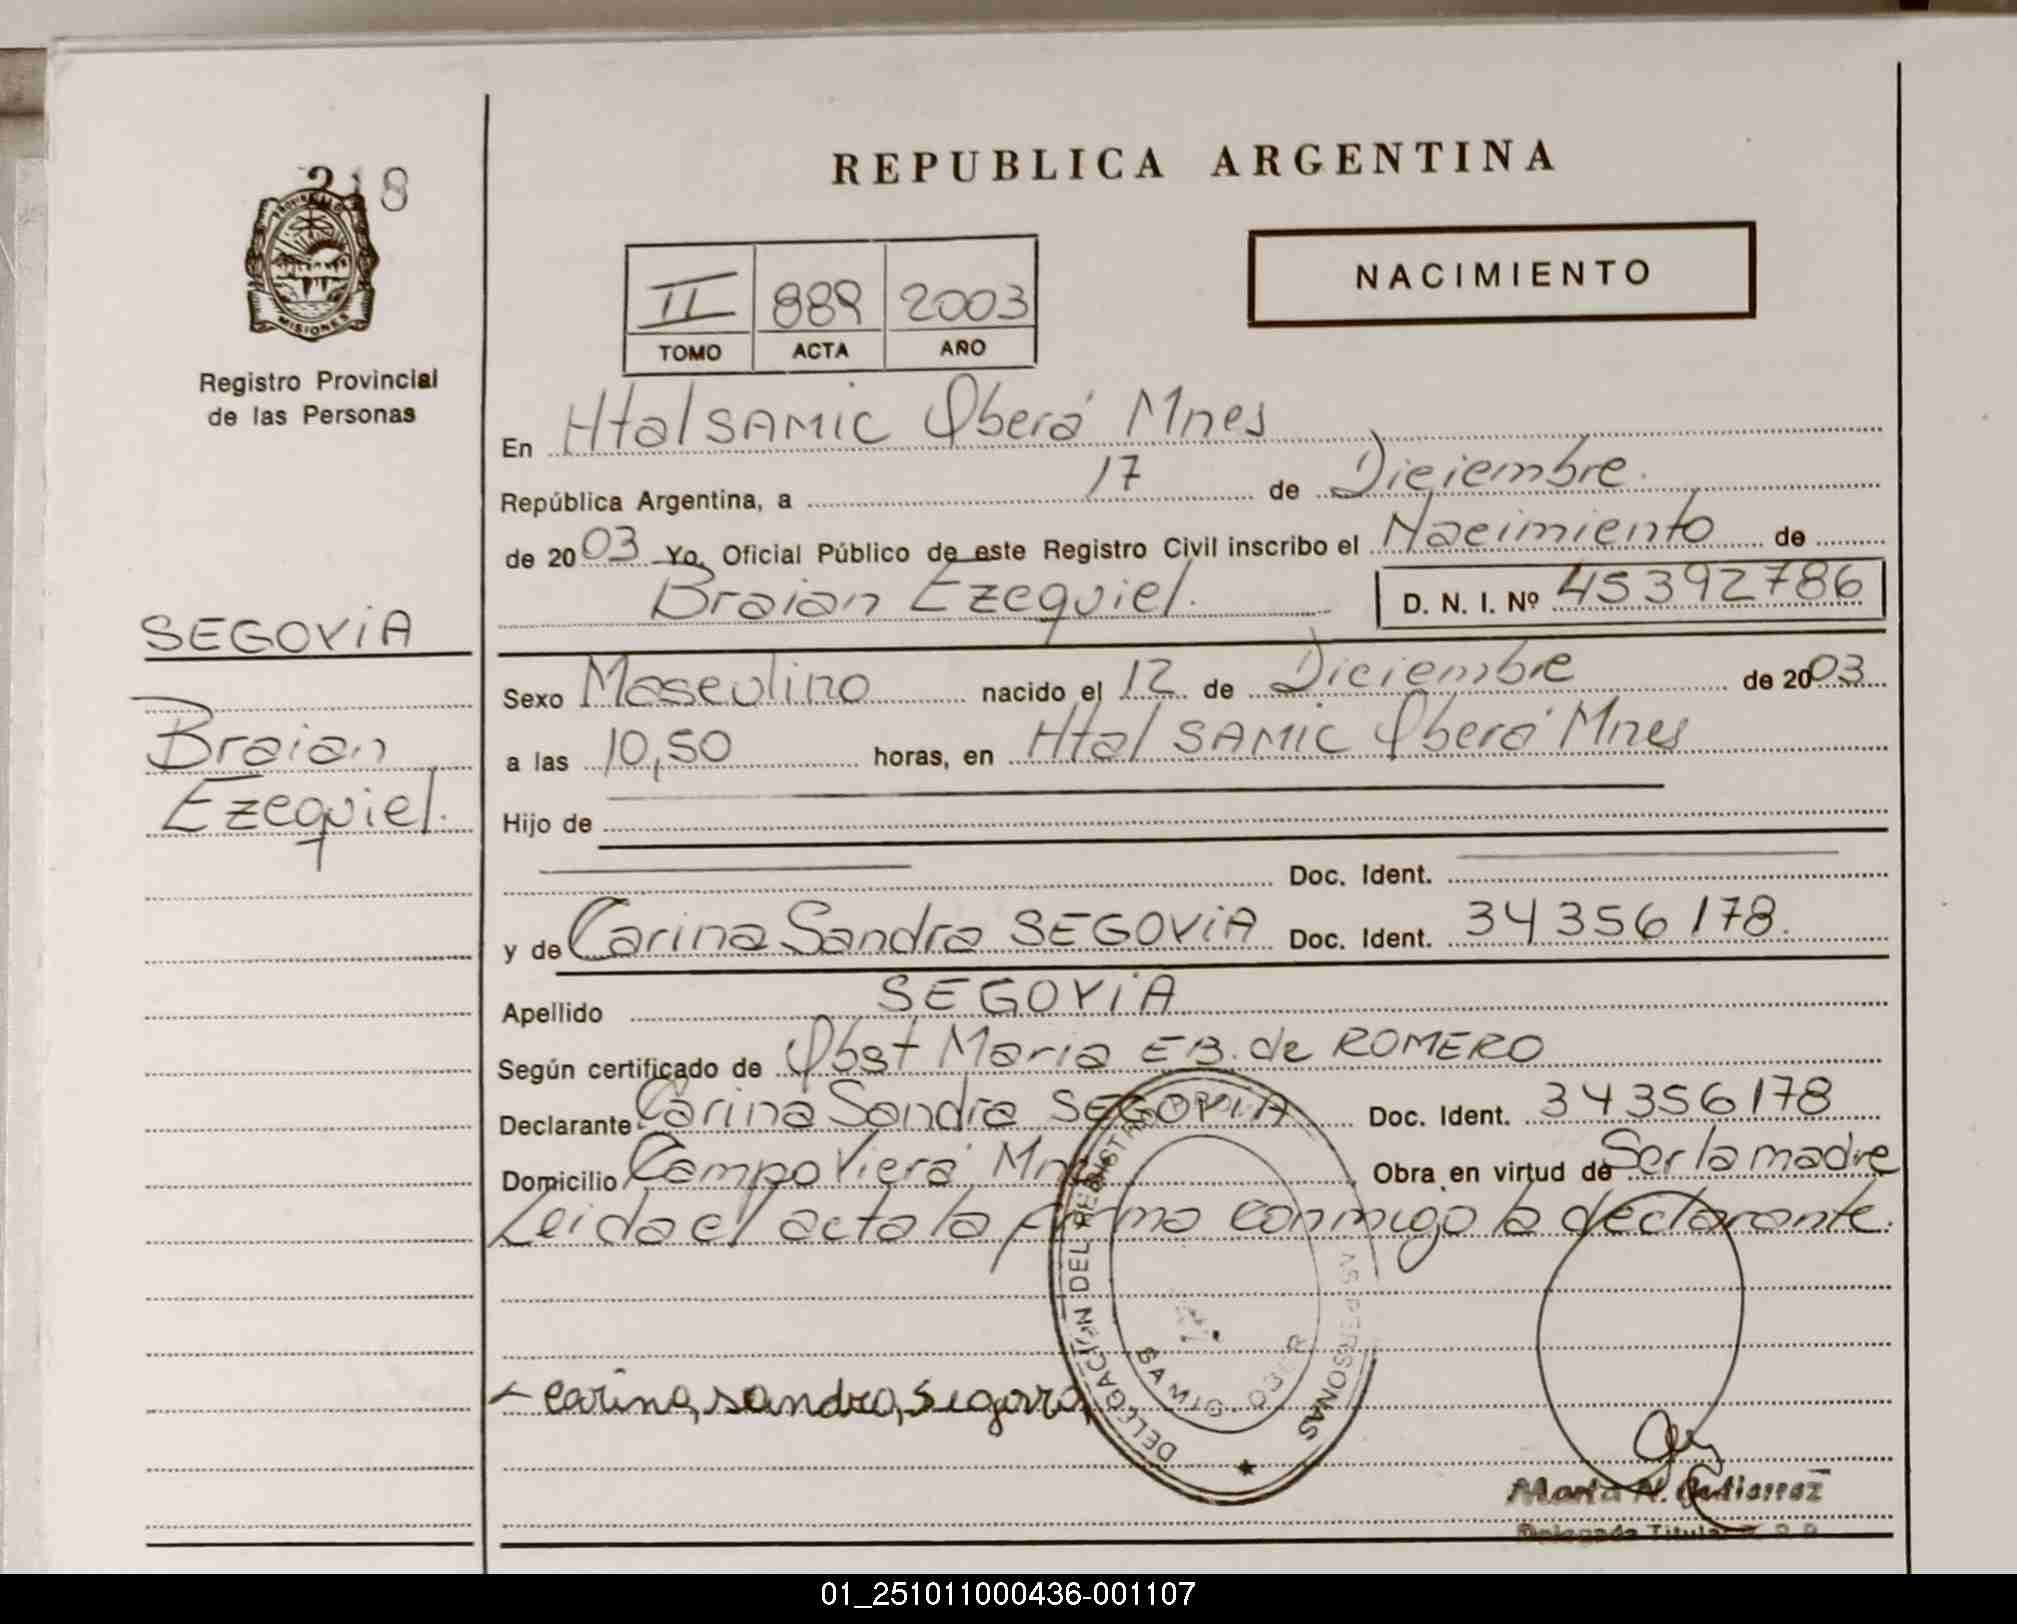 REPUBLICA ARGENTINA
218
NACIMIENTO
II 889 2003
TOMO ACTA AÑO
MISIONES
Registro Provincial
de las Personas
En Htal SAMIC Oberá Mnes
República Argentina, a 17 de Diciembre.
de 2003 Yo, Oficial Público de este Registro Civil inscribo el Nacimiento de
Braian Ezequiel. D. N. I. Nº 45392786
SEGOViA
Braian
Ezequiel.
Sexo Masculino nacido el 12 de Diciembre de 2003
a las 10,50 horas, en Htal SAMIC Oberá Mnes
Hijo de
Doc. Ident.
y de Carina Sandra SEGOViA Doc. Ident. 34356178.
Apellido SEGOViA
Según certificado de Obst Maria E B. de ROMERO
Declarante Carina Sandra SEGOViA Doc. Ident. 34356178
Domicilio Campo Viera Mnes Obra en virtud de Ser la madre
Leida el acta la firma conmigo la declarante.
carina, sandra, segovia
DELEGACION DEL REGISTRO PROV. LAS PERSONAS
SAMIC OBERA
Marta N. Gutierrez
Delegada Titular R. P. P.
01_251011000436-001107